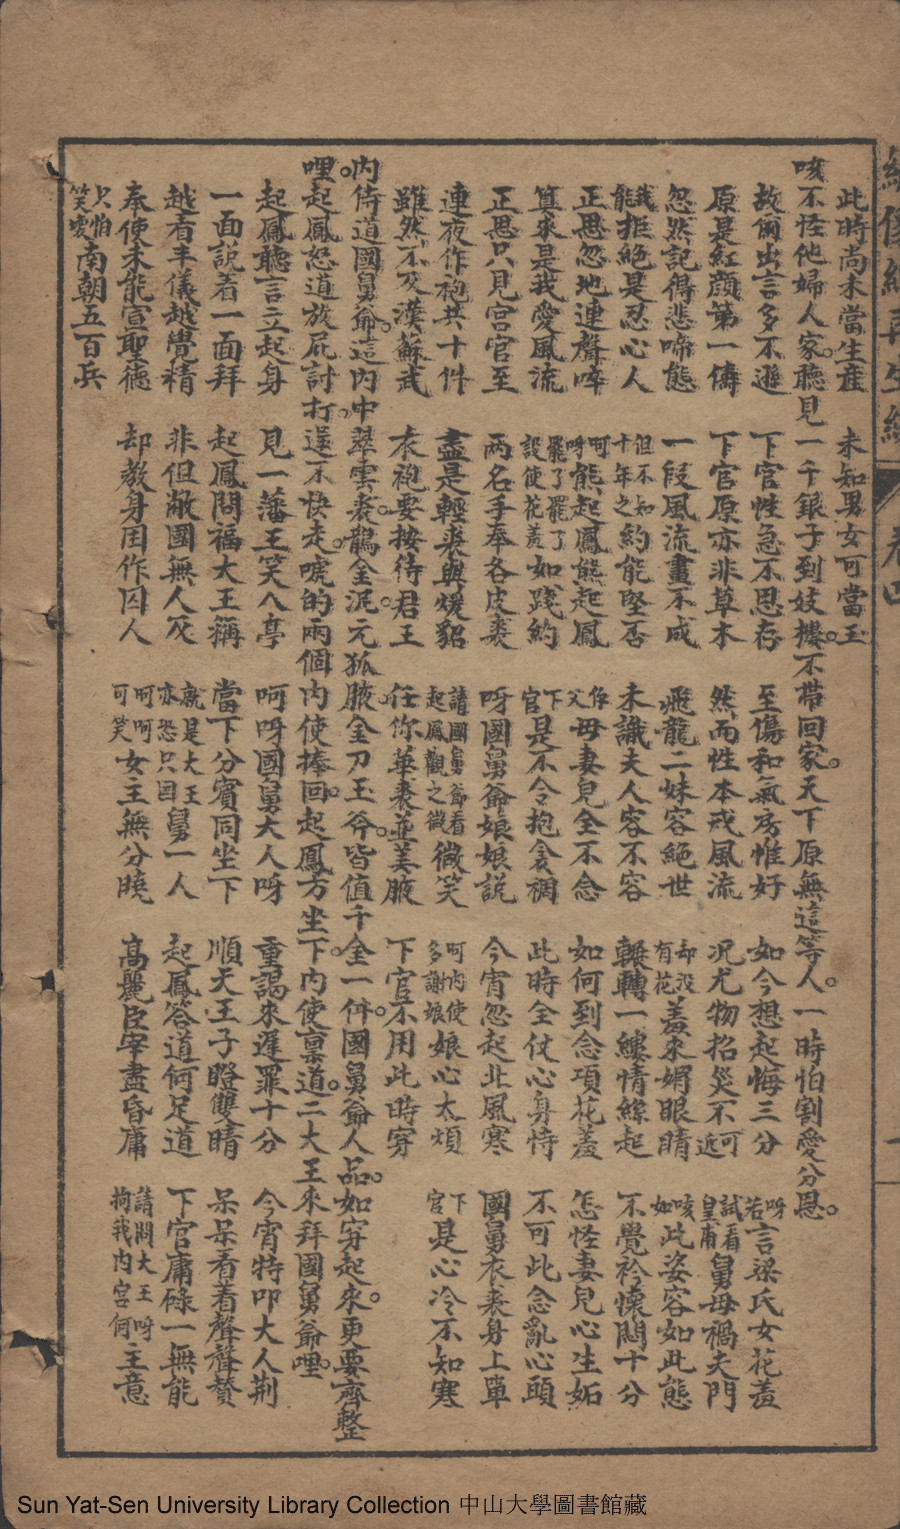 此時尚未當生產　未知男女可當玉
咳不怪他婦人家聽見一千銀子到妓樓不帶回家。天下原無這等人。一時怕割愛分恩。
故爾出言多不遜　下官性急不思存　至傷和氣房惟好　如今想起悔三分　呀若言梁氏女花羞
原是紅顏第一儔　下官原亦非草木　然而性本戒風流　況尤物招災不可近　試看皇甫舅母禍夫門
忽然記得悲啼態　一段風流畫不成　飛龍二妹容絕世　却沒有花羞來媚眼睛　咳如此姿容如此態
識能拒絕是忍心人　但不知十年之約能堅否　未識夫人容不容　輾轉一縷情絲起　不覺衿懷悶十分
正思忽地連聲啐　呵呀熊起鳳熊起鳳　父母妻兒全不念　如何到念項花羞　怎怪妻兒心生妬
算來是我愛風流　罷了罷了設使花羞如踐約　下官是不令抱衾裯　此時全仗心身恃　不可此念亂心頭
正思只見宮官至　兩名手奉各皮裘　呀國舅爺娘娘說　今宵忽起北風寒　國舅衣裘身上單
連夜作袍共十件　盡是輕裘與煖貂　請國舅爺看起鳳觀之微微笑　呵內使多謝娘娘心太煩　下官是心冷不知寒
雖然不及漢蘇武　衣袍要按待君王　任你華裘並美腋　下官不用此時穿
內侍道國舅爺。這內中翠雲裘。鶴金泥。元狐腋金刀玉斧。皆值千金一件。國舅爺人品。如穿起來。更要齊整
哩。起鳳怒道放屁討打。逞不快走。唬的兩個內使捧回。起鳳方坐下。內使稟道。二大王來拜國舅爺哩。
起鳳聽言立起身　見一藩王笑入亭　呵呀國舅大人呀　重謁來遲罪十分　今宵特叩大人荆
一面說着一面拜　起鳳問福大王稱　當下分賓同坐下　順天王子瞪雙睛　呆呆看着聲聲贊
越看丰儀越覺精　非但敝國無人及　就是大王亦恐只因舅一人　起鳳答道何足道　下官庸碌一無能
奉使未能宣聖德　却教身困作囚人　呵呵可笑女主無分曉　高麗臣宰盡昏庸　請問大王呀拘我內宮何主意
只怕笑壞南朝五百兵
卷四